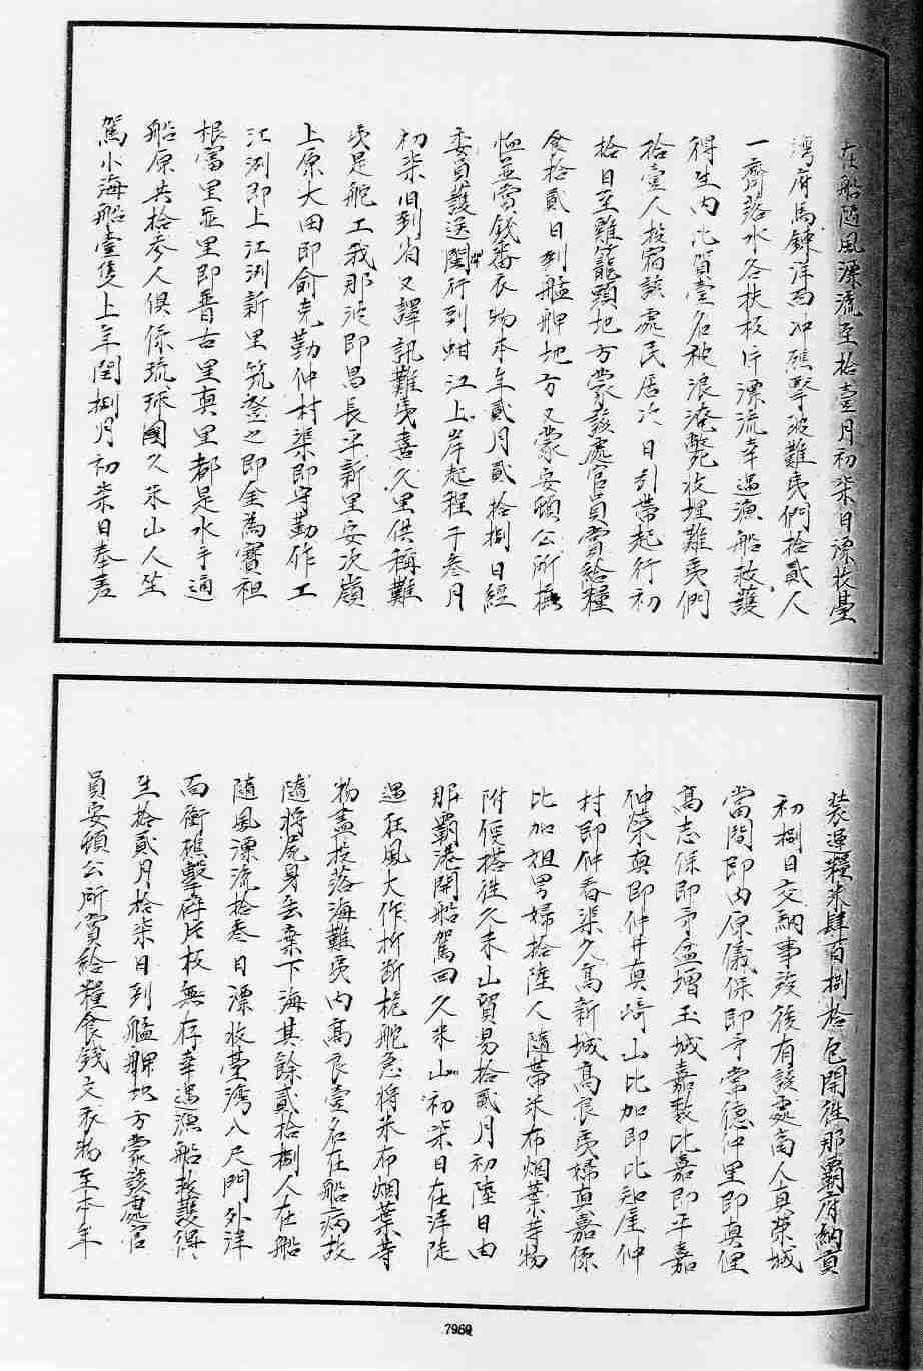 在船隨風漂流至拾壹月初柒日漂收臺
灣府馬鍊洋面冲礁擊破難夷們拾貳人
一齊落水各扶板片漂流幸遇漁船救護
得生內比賀壹名被浪淹斃收埋難夷們
拾壹人投宿該處民居次日引帶起行初
拾日至雞籠頭地方蒙該處官員賞給糧
食拾貳日到艋舺地方又蒙安頓公所撫
恤並賞錢番衣物本年貳月貳拾捌日經
委員護送閩行到蚶江上岸起程于叁月
初柒日到省又譯訊難夷喜久里供稱難
夷是舵工我那波即昌長平新里安次嶺
上原大田即俞克勤仲村渠即守勤作工
江洌即上江洌新里筑登之即金為寶祖
根富里並里即普古里真里都是水手通
船原共拾參人俱係琉球國久米山人坐
駕小海船壹隻上年閏捌月初柒日奉差
裝運糧米肆百捌拾包開往那霸府納貢
初捌日交納事竣後有該處商人真榮城
當間即內原儀保即予常德仲里即真俚
高志保即予盆增玉城嘉數比嘉即平嘉
仲榮真即仲井真崎山比加即比知屋仲
村即仲春渠久高新城高良夷婦真嘉係
比加姐男婦拾陸人隨帶米布烟葉等物
附便搭往久米山貿易拾貳月初陸日由
那霸港開船駕回久米山初柒日在洋陡
遇狂風大作折斷桅舵急將米布烟葉等
物盡投落海難夷內高良壹名在船病故
隨將屍身丟棄下海其餘貳拾捌人在船
隨風漂流拾叁日漂收臺灣八尺門外洋
面衝礁擊碎片板無存幸遇漁船救護得
生拾貳月拾柒日到艋舺地方蒙該處官
員安頓公所賞給糧食錢文衣物至本年
7969